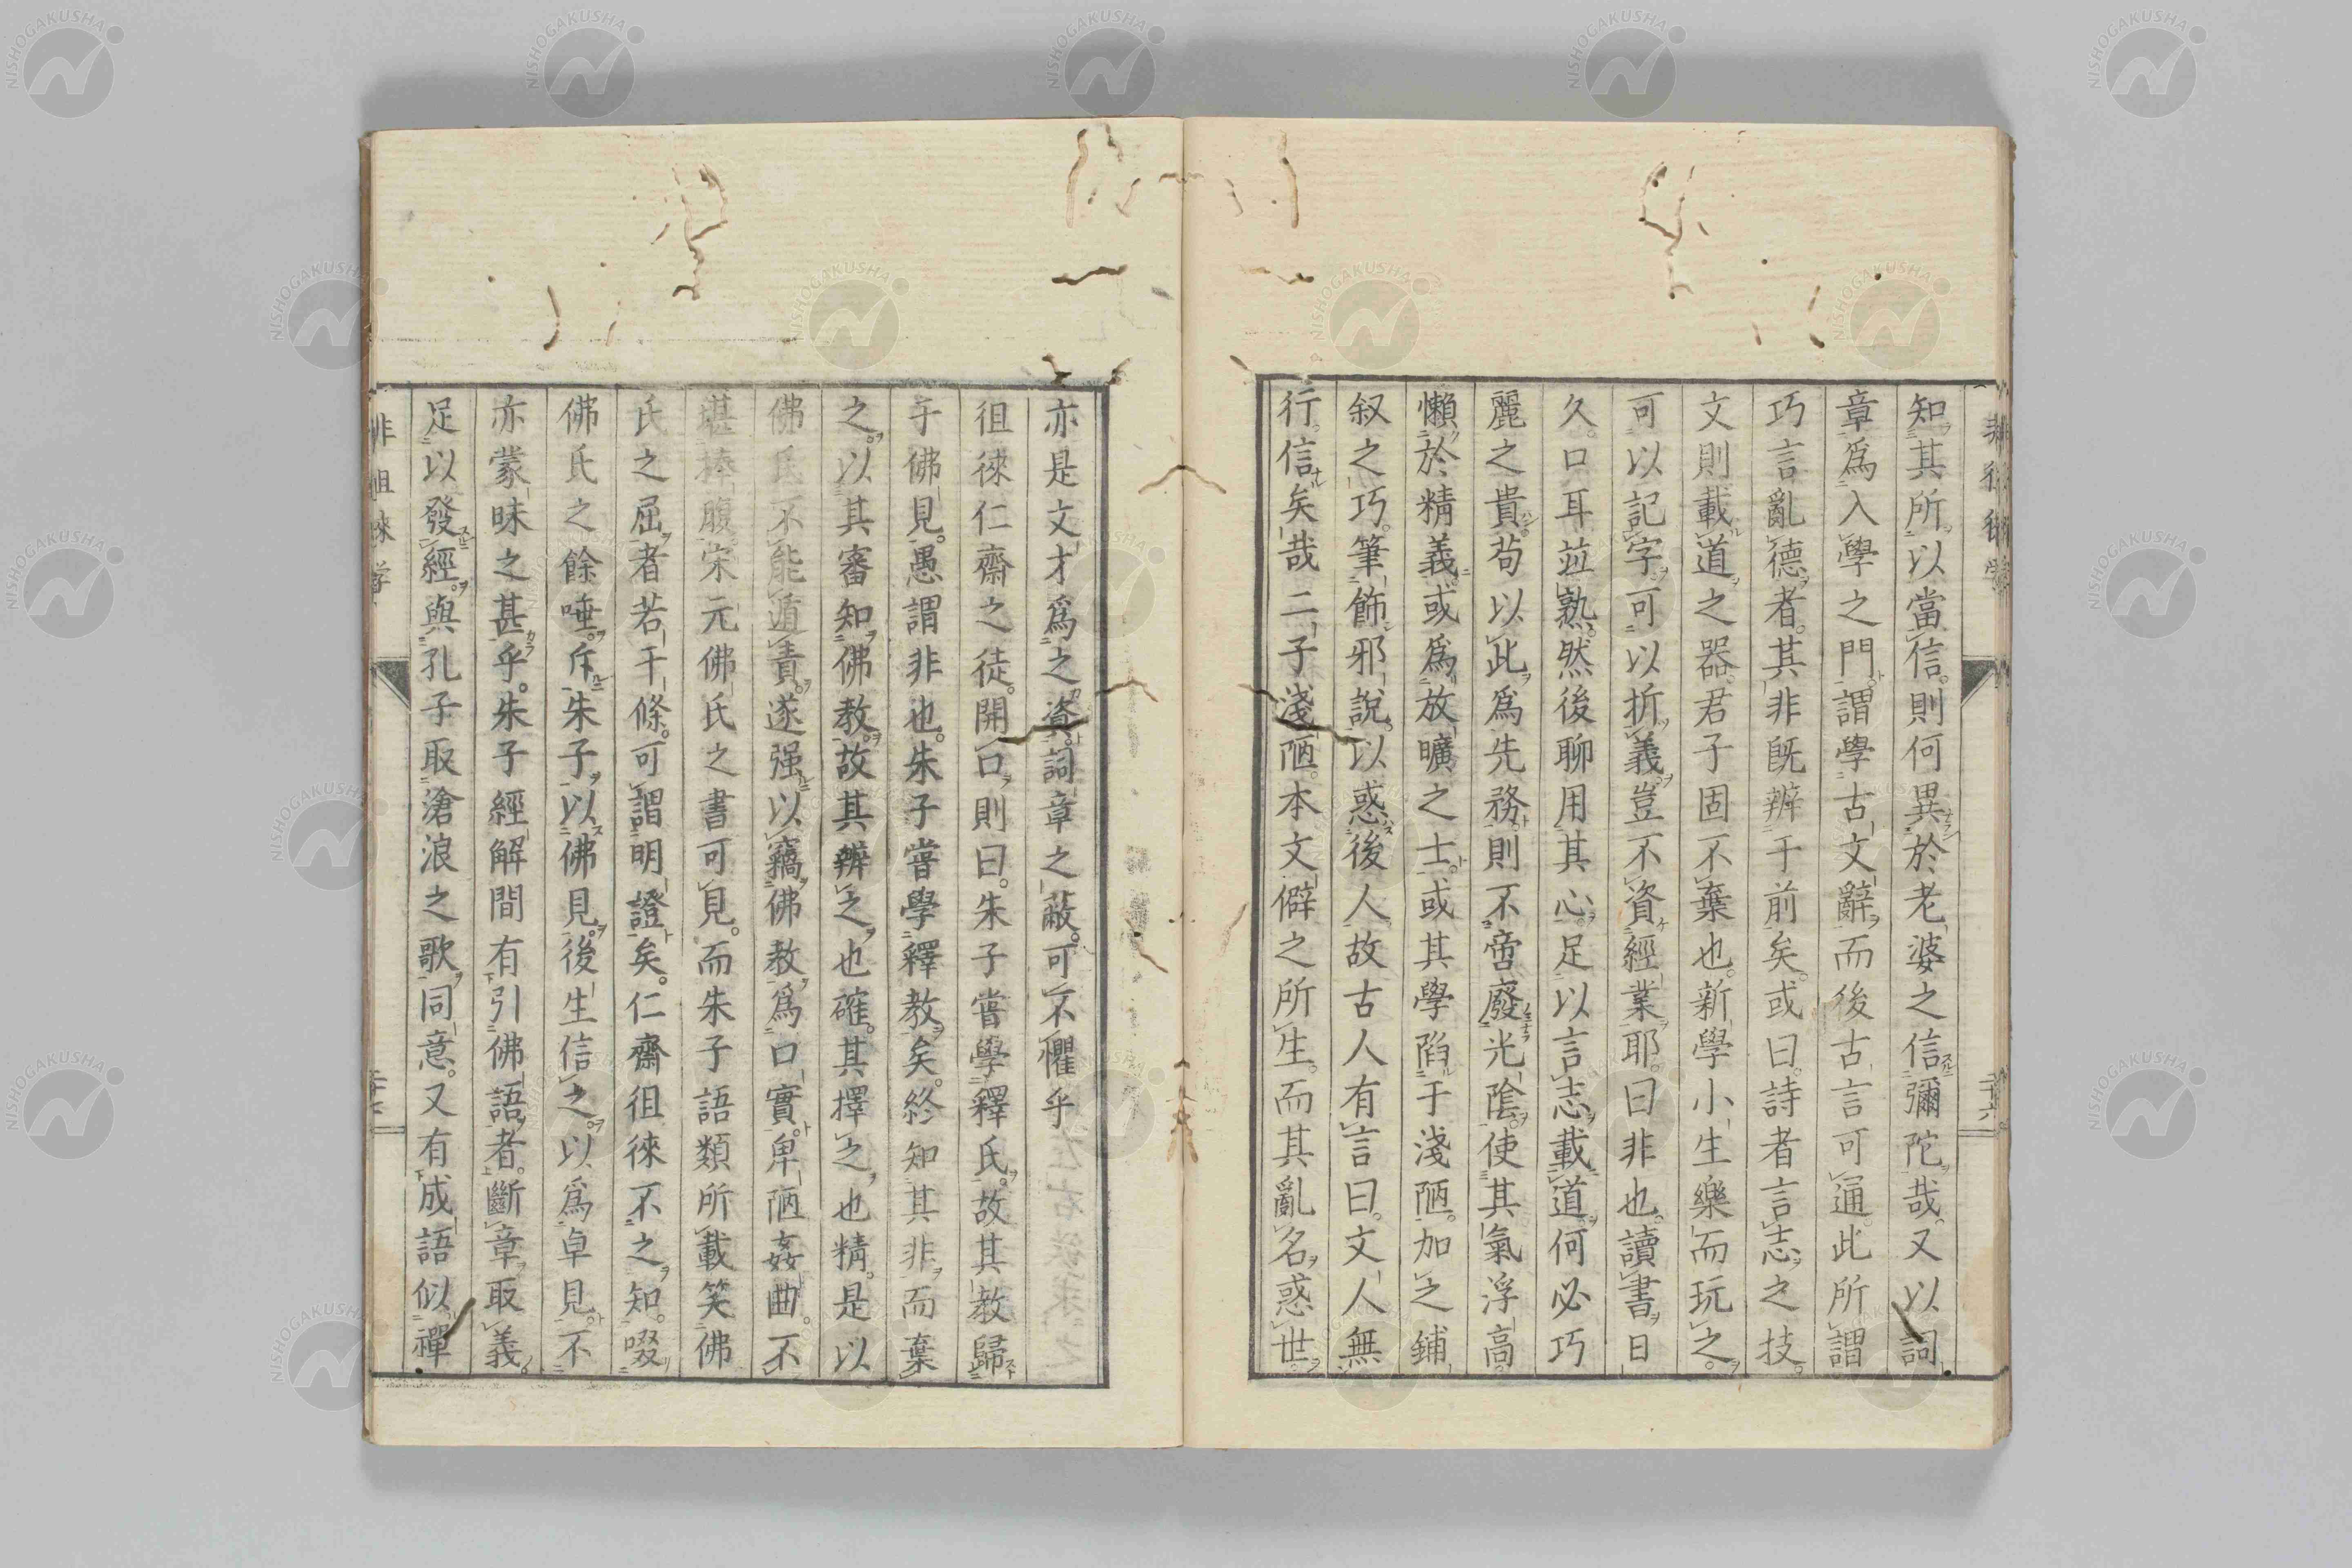 知其所以當信則何異於老婆之信彌陀哉又以詞
章爲入學之門謂學古文辭而後古言可通此所謂
巧言亂德者其非既辨于前矣或曰詩者言志之技
文則載道之器君子固不棄也新學小生樂而玩之
可以記字可以折義豈不資經業耶曰非也讀書日
久口耳並熟然後聊用其心足以言志載道何必巧
麗之貴苟以此爲先務則不啻廢光陰使其氣浮高
懶於精義或爲放曠之士或其學陷于淺陋加之鋪
叙之巧筆飾邪說以惑後人故古人有言曰文人無
行信矣哉二子淺陋本文僻之所生而其亂名惑世
二十六
亦是文才爲之資詞章之蔽可不懼乎
徂徠仁齋之徒開口則曰朱子嘗學釋氏故其教歸
于佛見愚謂非也朱子嘗學釋教矣終知其非而棄
之以其審知佛教故其辨之也確其擇之也精是以
佛氏不能遁責遂强以竊佛教爲口實卑陋姦曲不
堪捧腹宋元佛氏之書可見而朱子語類所載笑佛
氏之屈者若干條可謂明證矣仁齋徂徠不之知啜
佛氏之餘唾斥朱子以佛見後生信之以爲卓見不
亦蒙昧之甚乎朱子經解間有引佛語者斷章取義
足以發經與孔子取滄浪之歌同意又有成語似禪
非徂徠学